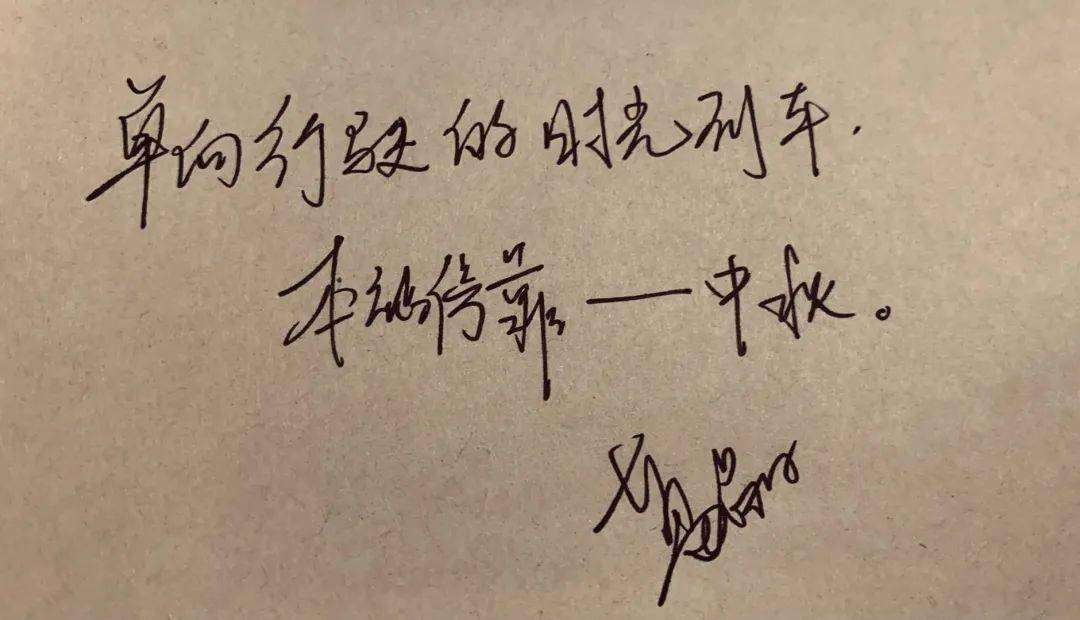 单向行驶的时光列车.
本站停靠——中秋。